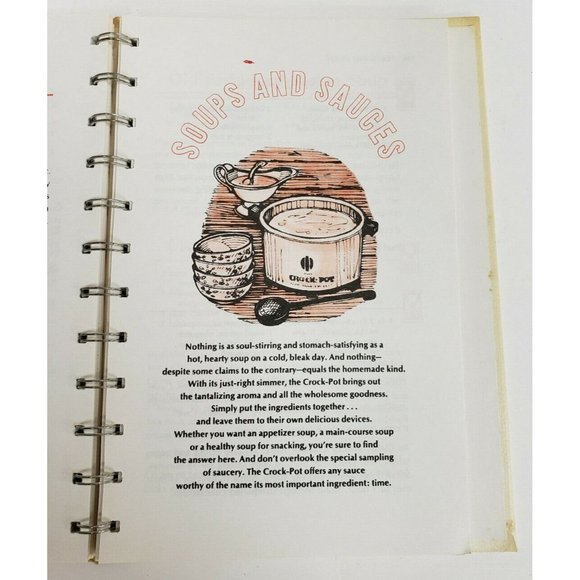 SOUPS AND SAUCES
CROCK-POT
Nothing is as soul-stirring and stomach-satisfying as a
hot, hearty soup on a cold, bleak day. And nothing—
despite some claims to the contrary—equals the homemade kind.
With its just-right simmer, the Crock-Pot brings out
the tantalizing aroma and all the wholesome goodness.
Simply put the ingredients together . . .
and leave them to their own delicious devices.
Whether you want an appetizer soup, a main-course soup
or a healthy soup for snacking, you're sure to find
the answer here. And don't overlook the special sampling
of saucery. The Crock-Pot offers any sauce
worthy of the name its most important ingredient: time.